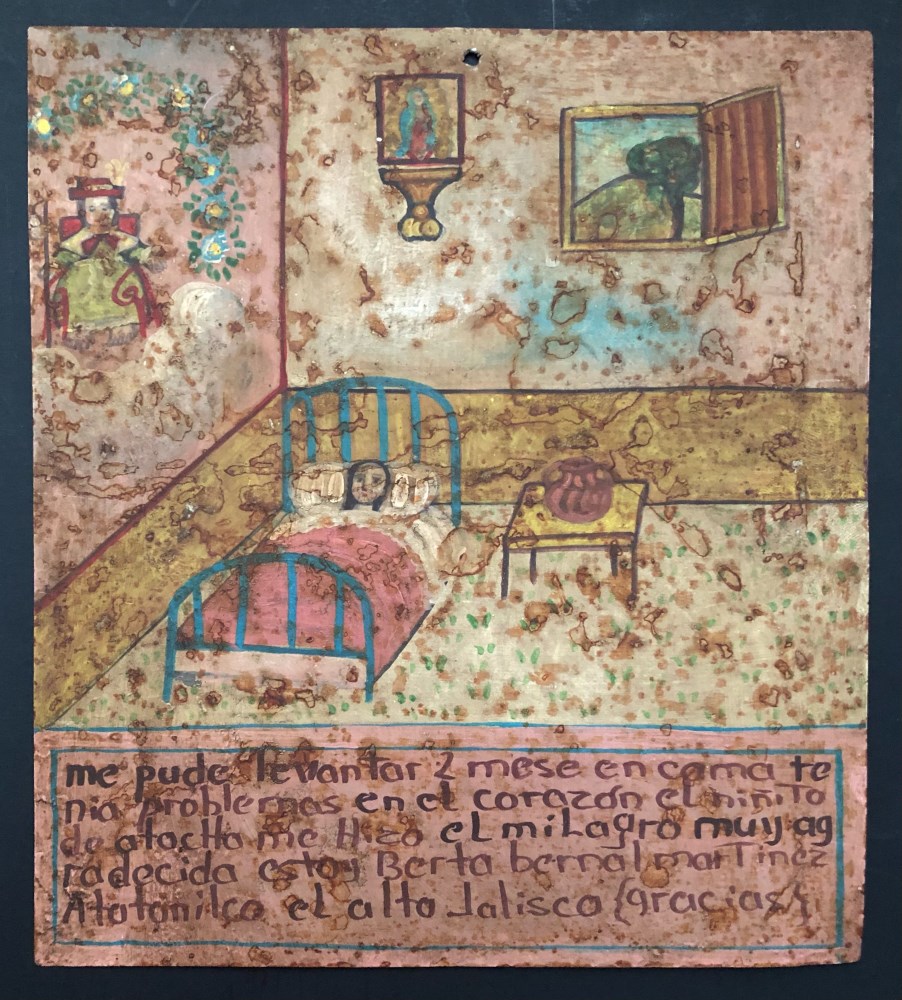 me pude levantar 2 mese en cama te
nia problemas en el corazón el niñito
de atocHa me Hizo el miLagro muy ag
radecida estoy Berta bernal marTinez
Atotonilco el alto Jalisco {gracias}